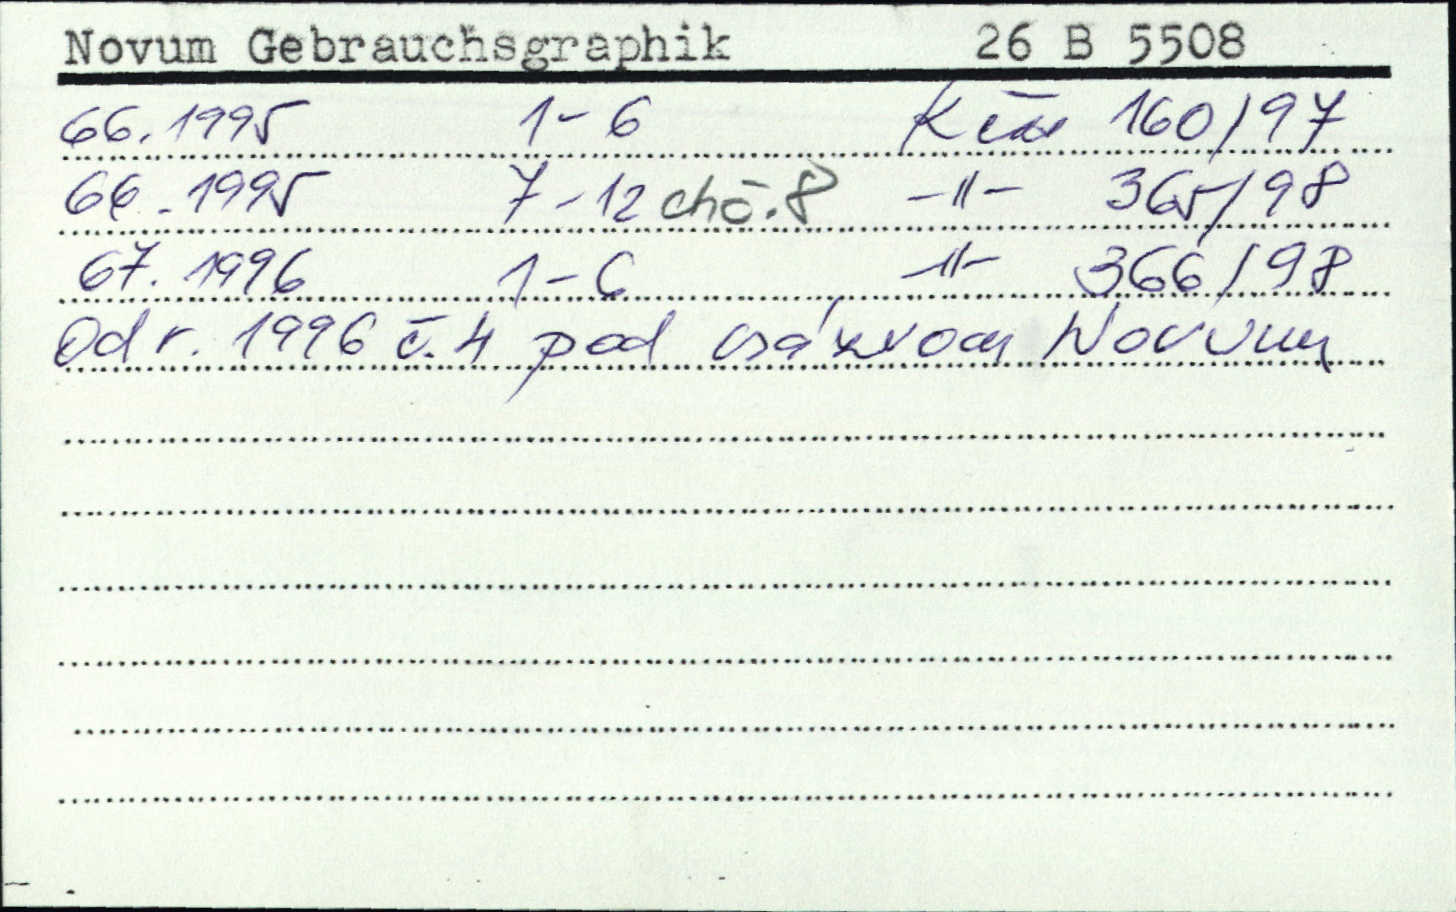 Novum Gebrauchsgraphik 26 B 5508
66. 1995 1-6 Kčas 160/97
66. 1995 7-12 chč. 8 -"- 365/98
67. 1996 1-6 -"- 366/98
Od r. 1996 č. 4 pod názvom Novum